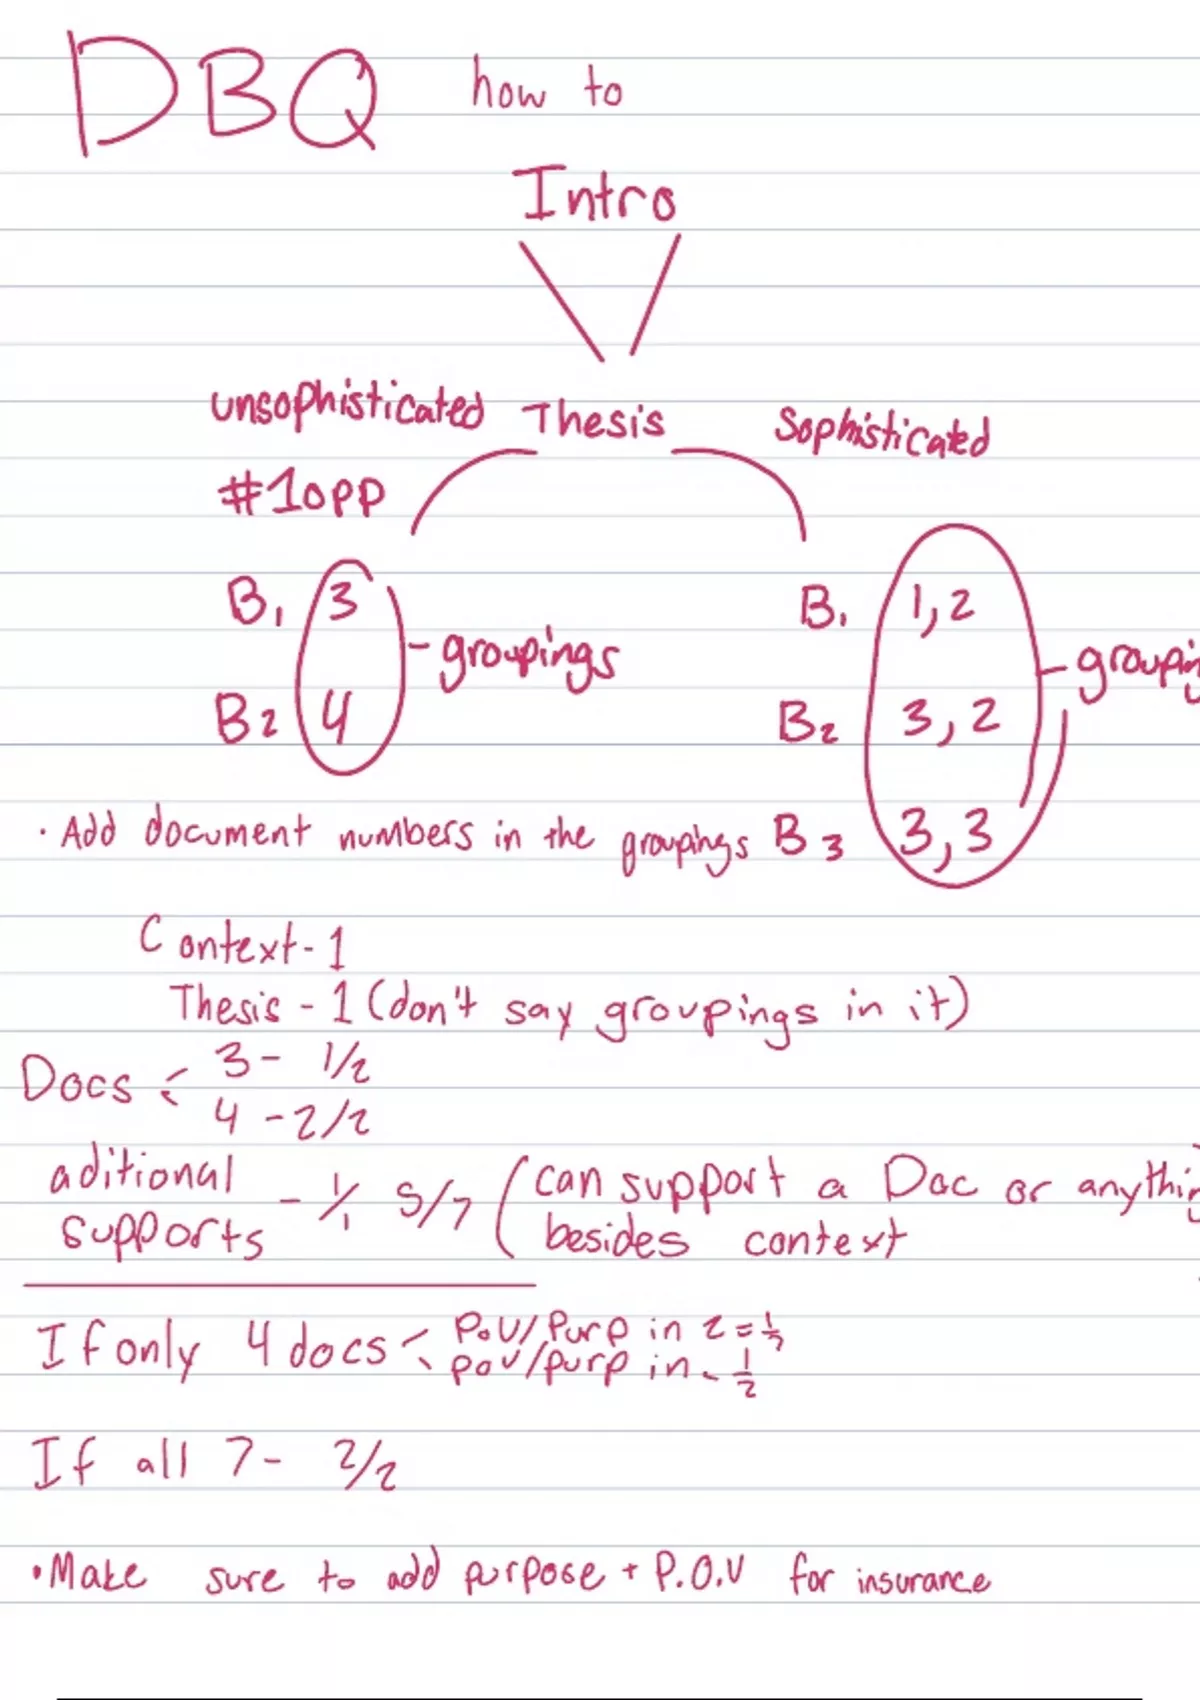 DBQ how to
Intro
unsophisticated Thesis Sophisticated
#1opp
B1 3 - groupings B1 1,2
B2 4 B2 3,2 - groupin
• Add document numbers in the groupings B3 3,3
Context - 1
Thesis - 1 (don't say groupings in it)
Docs < 3 - 1/2
4 - 2/2
aditional supports - 1/1 5/7 (can support a Doc or anythin
besides context
If only 4 docs < P.O.V/Purp in 2 = 1/2
pov/purp in - 1/2
If all 7 - 2/2
• Make sure to add purpose + P.O.V for insurance